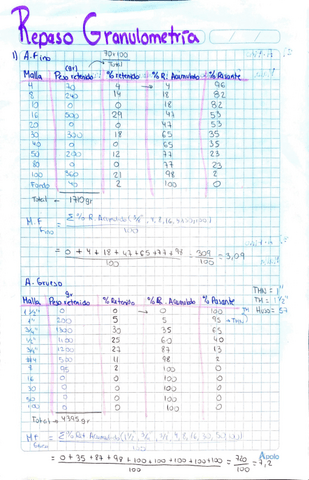 Repaso Granulometría
1) A. Fino
(gr) 70×100
Total
Malla Peso retenido % retenido % R. Acumulado % Pasante
4 70 4 → 4 96
8 240 14 18 82
10 0 0 18 82
16 500 29 47 53
20 0 0 47 53
30 300 18 65 35
40 0 0 65 35
50 200 12 77 23
80 0 0 77 23
100 360 21 98 2
Fondo 40 2 100 0
Total = 1710gr
MF = Σ % R. Acumulado (3/8", 4, 8, 16, 30, 50, 100)
Fino 100
= 0 + 4 + 18 + 47 + 65 + 77 + 98 = 309 = 3,09
100 100
A. Grueso
gr
Malla Peso retenido % Retenido % R. Acumulado % Pasante
TMN = 1"
TM = 1 1/2"
Huso = 57
1 1/2" 0 0 → 0 100 TM
1" 200 5 5 95 → TMN
3/4" 1300 30 35 65
1/2" 1100 25 60 40
3/8" 1200 27 87 13
#4 500 11 98 2
8 95 2 100 0
16 0 0 100 0
30 0 0 100 0
50 0 0 100 0
100 0 0 100 0
Total = 4395gr
MF = Σ % Ret Acumulado
100
= 0 + 35 + 87 + 98 + 100 + 100 + 100 + 100 + 100 = 720 = 7,2
100 100